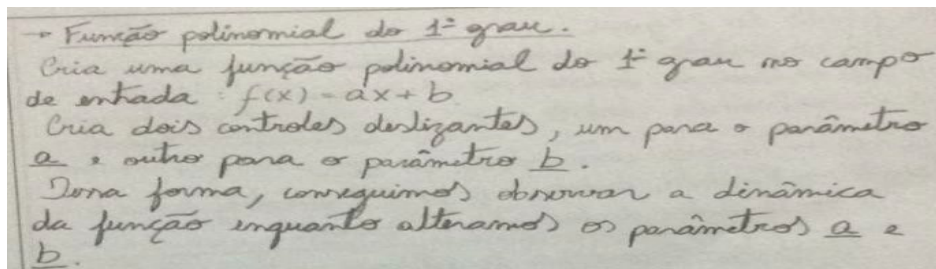 → Função polinomial do 1º grau.
Cria uma função polinomial do 1º grau no campo
de entrada: f(x) = ax + b
Cria dois controles deslizantes, um para o parâmetro
a e outro para o parâmetro b.
Dessa forma, conseguimos observar a dinâmica
da função enquanto alteramos os parâmetros a e
b.